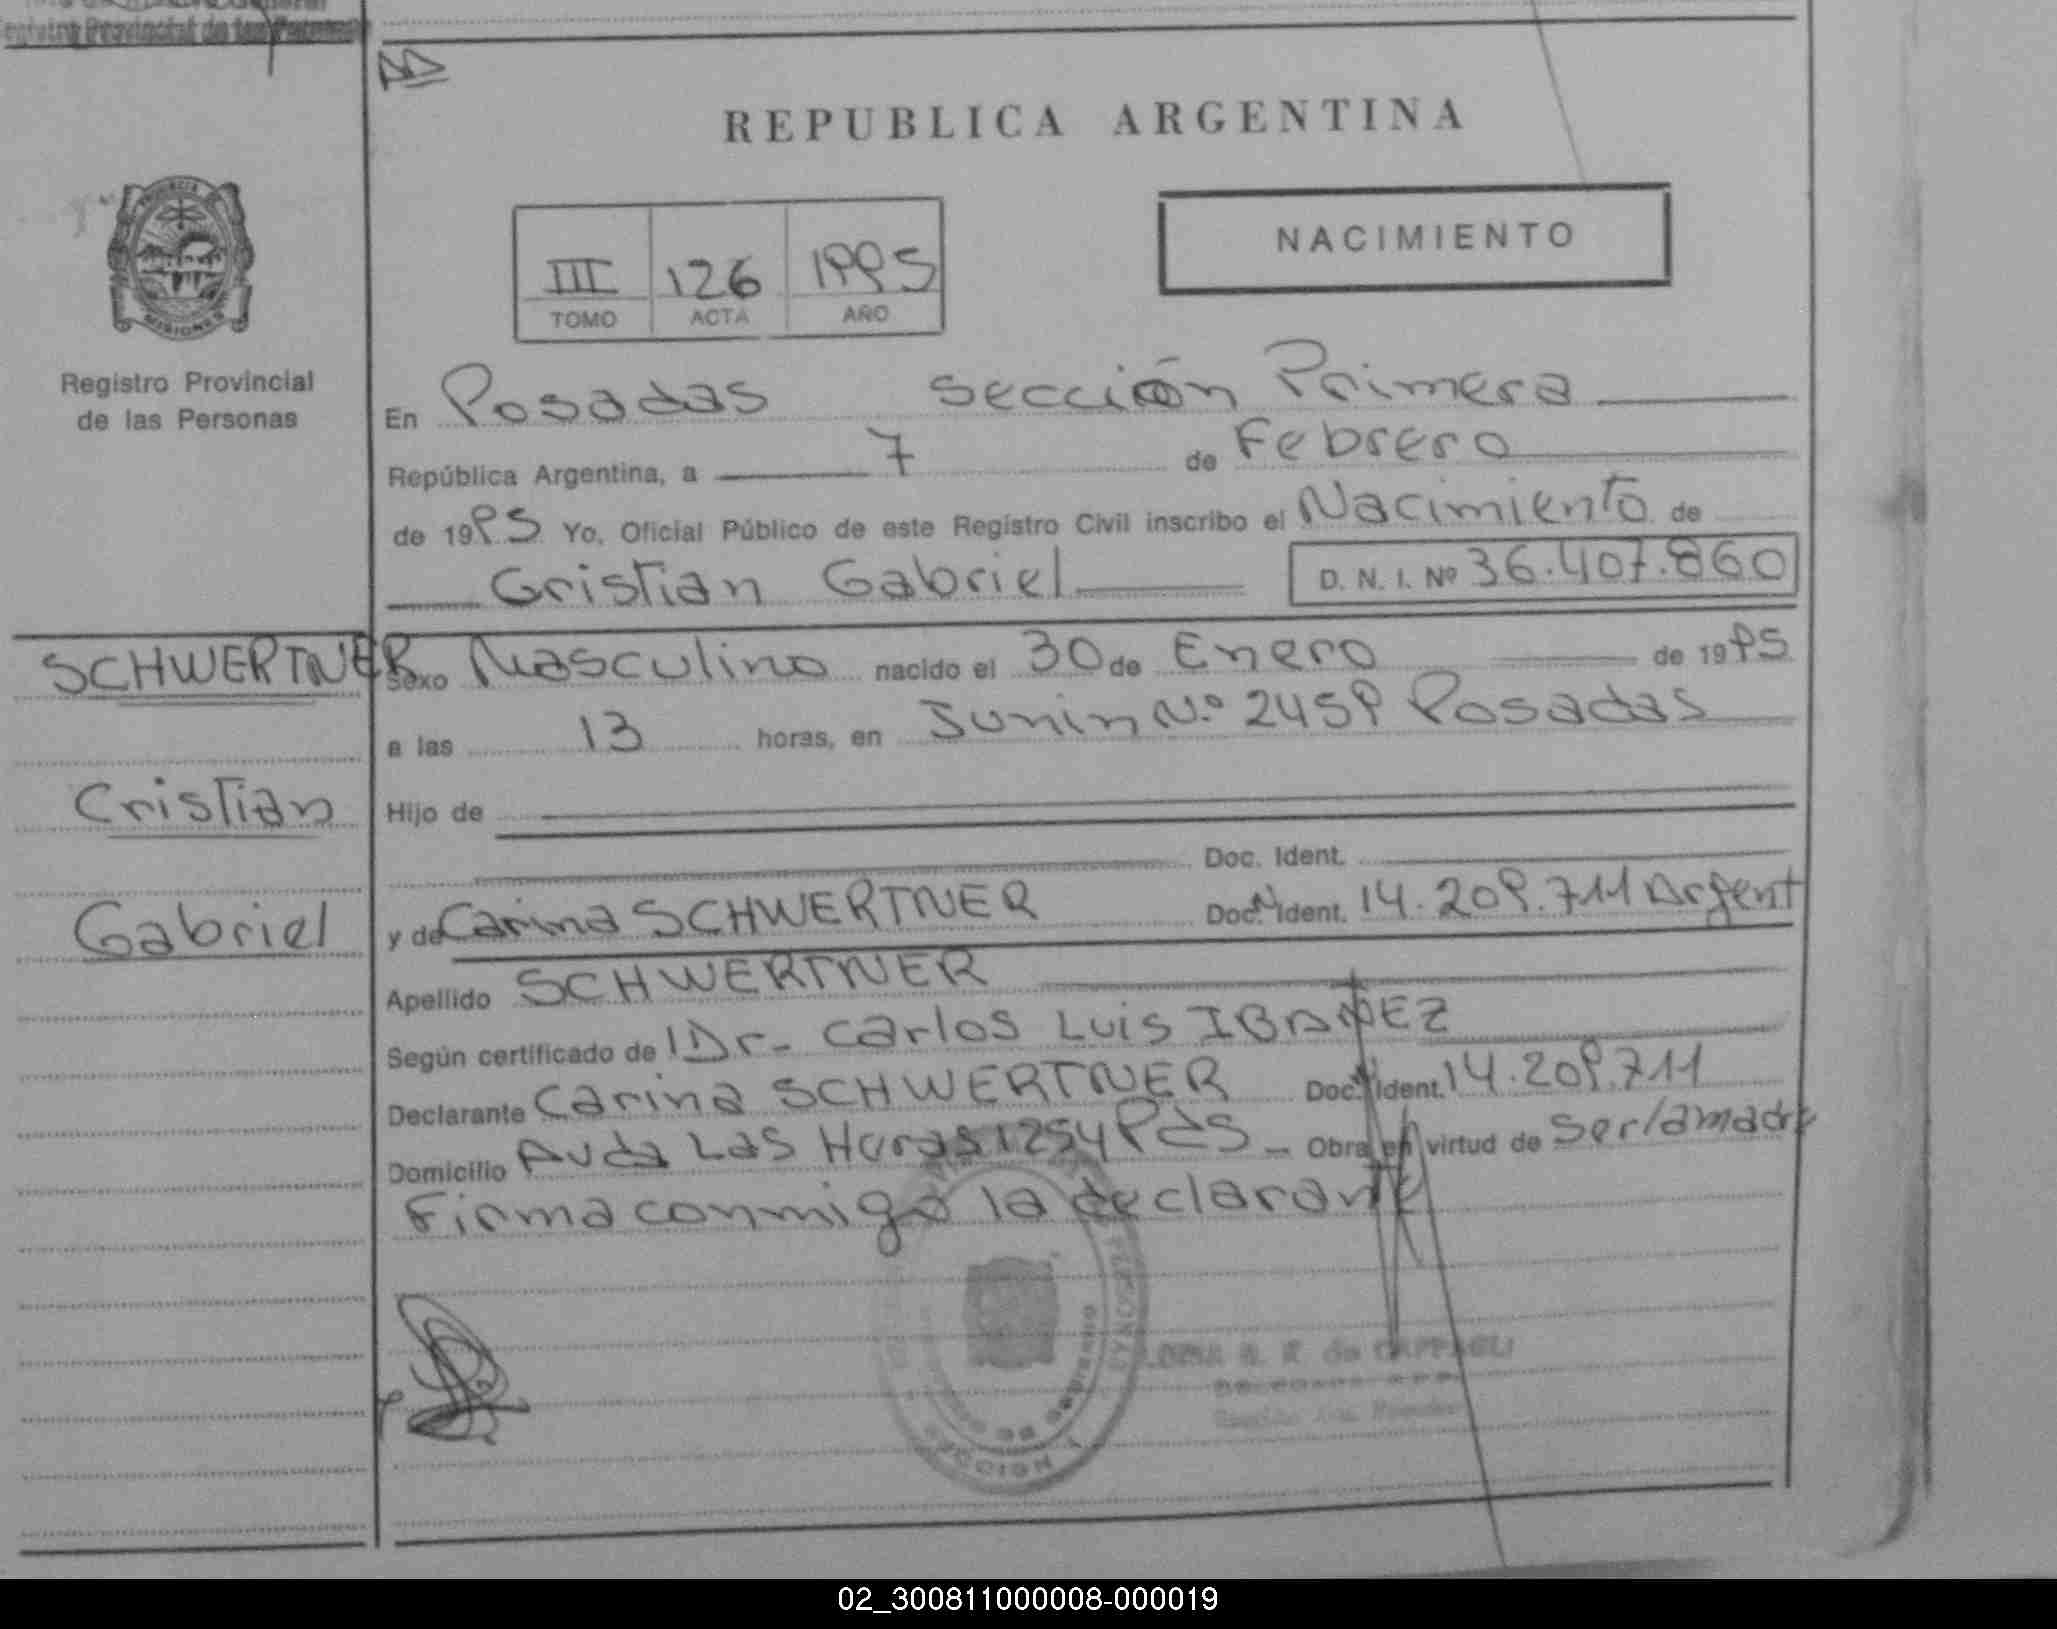 Registro Provincial de las Personas
REPUBLICA ARGENTINA
NACIMIENTO
III 126 1995
TOMO ACTA AÑO
MISIONES
Registro Provincial
de las Personas
En Posadas Sección Primera
República Argentina, a 7 de Febrero
de 1995 Yo, Oficial Público de este Registro Civil inscribo el Nacimiento de
Cristian Gabriel D. N. I. Nº 36.407.860
SCHWERTNER
Cristian
Gabriel
Sexo Masculino nacido el 30 de Enero de 1995
a las 13 horas, en Junin N.º 2459 Posadas
Hijo de
Doc. Ident.
y de Carina SCHWERTNER Doc. N Ident. 14.209.711 Argent
Apellido SCHWERTNER
Según certificado de Dr. Carlos Luis IBAÑEZ
Declarante Carina SCHWERTNER Doc. Ident. 14.209.711
Domicilio Avda Las Heras 1254 Pdas - Obra en virtud de ser la madre
Firma conmigo la declarante
SECCION 1
02_300811000008-000019